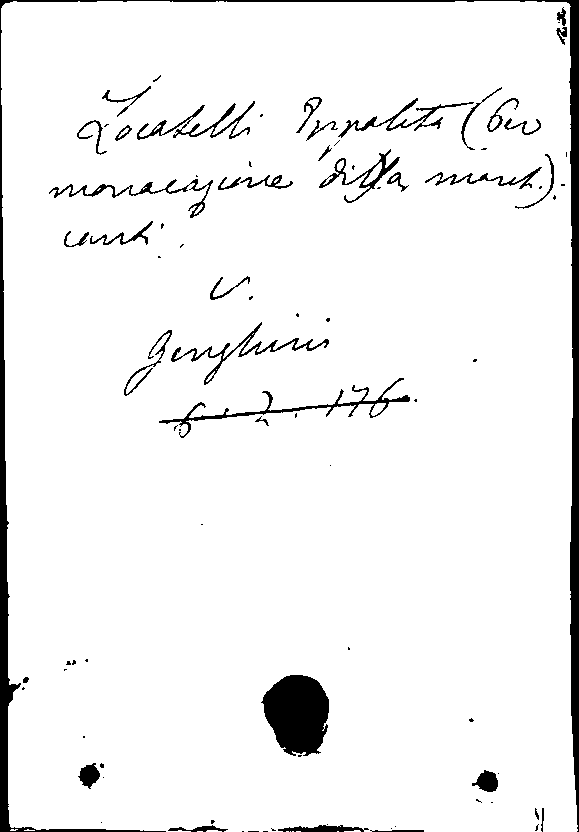 Locatelli Ippolita (Per
monacazione della march.).
canti.
v.
Genghini
6. 2. 176.